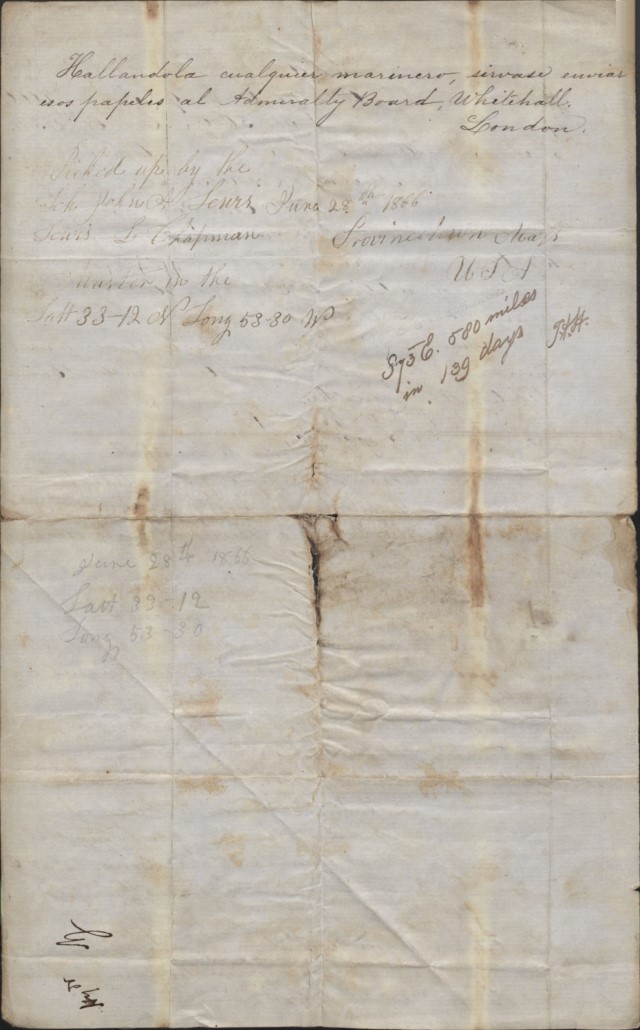 Hallandola cualquier marinero, sirvase enviar
esos papeles al Admiralty Board, Whitehall.
London.
Picked up by the
Sch. John A. Lewis June 28th 1866
Lewis L. Chapman Provincetown Mass
Master in the U S A
Latt 33-12 N Long 53-30 W
S73°E. 580 miles
in 139 days
June 28th 1866
Latt 33-12
Long 53-30